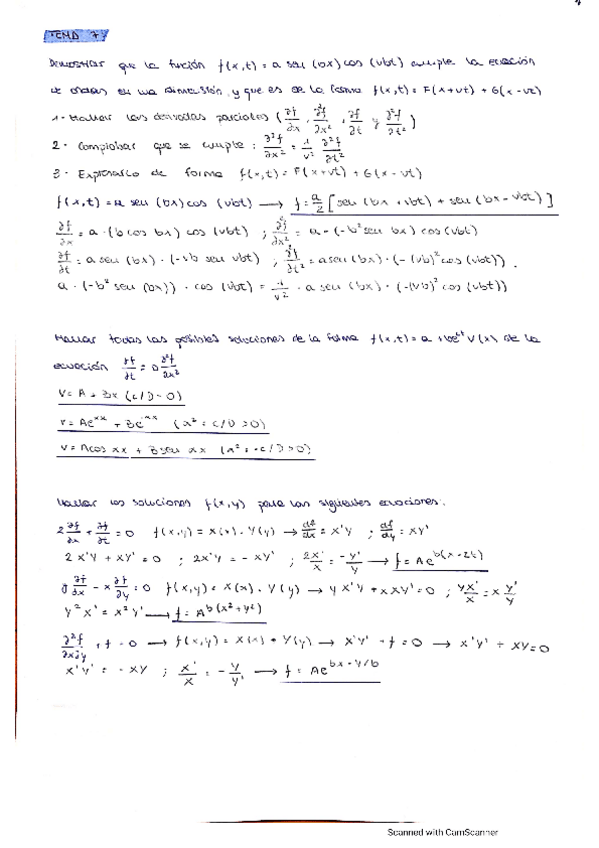 TEMA 7
Demostrar que la función f(x,t) = a seu (bx) cos (vbt) cumple la ecuación
de ondas en una dimensión, y que es de la forma f(x,t) = F(x+vt) + G(x-vt)
1 - Hallar las derivadas parciales (∂f/∂x, ∂²f/∂x², ∂f/∂t y ∂²f/∂t²)
2 - Comprobar que se cumple: ∂²f/∂x² = 1/v² ∂²f/∂t²
3 - Expresarlo de forma f(x,t) = F(x+vt) + G(x-vt)
f(x,t) = a seu (bx) cos (vbt) → f = a/2 [seu (bx + vbt) + seu (bx - vbt)]
∂f/∂x = a · (b cos bx) cos (vbt) ; ∂²f/∂x² = a · (-b² seu bx) cos (vbt)
∂f/∂t = a seu (bx) · (-vb seu vbt) ; ∂²f/∂t² = a seu (bx) · (-(vb)² cos (vbt)).
a · (-b² seu (bx)) · cos (vbt) = 1/v² · a seu (bx) · (-(vb)² cos (vbt))
Hallar todas las posibles soluciones de la forma f(x,t) = a + be^ct V(x) de la
ecuación ∂f/∂t = D ∂²f/∂x²
V = A + Bx (c/D = 0)
V = Ae^αx + Be^-αx (α² = c/D > 0)
V = A cos αx + B seu αx (α² = -c/D > 0)
Hallar las soluciones f(x,y) para las siguientes ecuaciones:
2 ∂f/∂x + ∂f/∂t = 0 f(x,y) = X(x) · Y(y) → df/dx = X'Y ; df/dy = XY'
2X'Y + XY' = 0 ; 2X'Y = -XY' ; 2X'/X = -Y'/Y → f = Ae^b(x-2t)
y ∂f/∂x - x ∂f/∂y = 0 f(x,y) = X(x) · Y(y) → yX'Y + xXY' = 0 ; yX'/X = x Y'/Y
Y²X' = X²Y' → f = A^b(x²+y²)
∂²f/∂x∂y + f = 0 → f(x,y) = X(x) + Y(y) → X'Y' - f = 0 → X'Y' + XY = 0
X'Y' = -XY ; X'/X = -Y/Y' → f = Ae^bx-y/b
Scanned with CamScanner